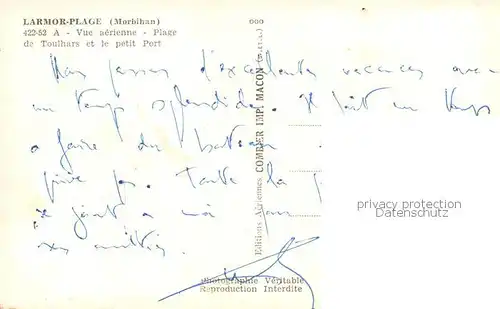 LARMOR-PLAGE (Morbihan)
422-52 A - Vue aérienne - Plage
de Toulhars et le petit Port
Nous passons d'excellentes vacances avec
un temps splendide. Il fait un temps
a faire du bateau
Toute la
se joint a moi pour
ses amitiés
Editions Aériennes COMBIER IMP. MACON
privacy protection
Datenschutz
Photographie Véritable
Reproduction Interdite